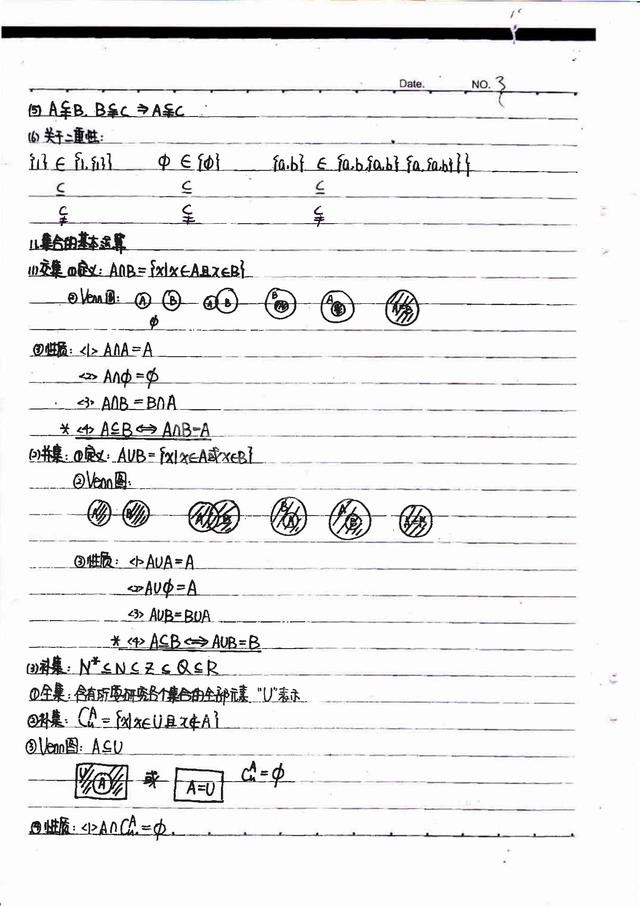 Date. NO. 3
(5) A⫋B, B⫋C ⇒ A⫋C
(6) 关于二重性:
{1} ∈ {1,{1}} ϕ ∈ {ϕ} {a,b} ∈ {a,b,{a,b},{a,{a,b}}}
⊆ ⊆ ⊆
⫋ ⫋ ⫋
11.集合的基本运算
(1)交集 ①定义: A∩B={x|x∈A且x∈B}
②Venn图: A B A B B A A B A=B
ϕ
③性质: <1> A∩A=A
<2> A∩ϕ=ϕ
<3> A∩B=B∩A
* <4> A⊆B⇔A∩B=A
(2)并集: ①定义: A∪B={x|x∈A或x∈B}
②Venn图:
A B A B B A A B A=B
③性质: <1> A∪A=A
<2> A∪ϕ=A
<3> A∪B=B∪A
* <4> A⊆B⇔A∪B=B
(3)补集: N*⊆N⊆Z⊆Q⊆R
①全集: 含有所要研究各个集合的全部元素 "U"表示
②补集: CuA={x|x∈U且x∉A}
③Venn图: A⊆U
U A 或 A=U CuA=ϕ
④性质: <1> A∩CuA=ϕ